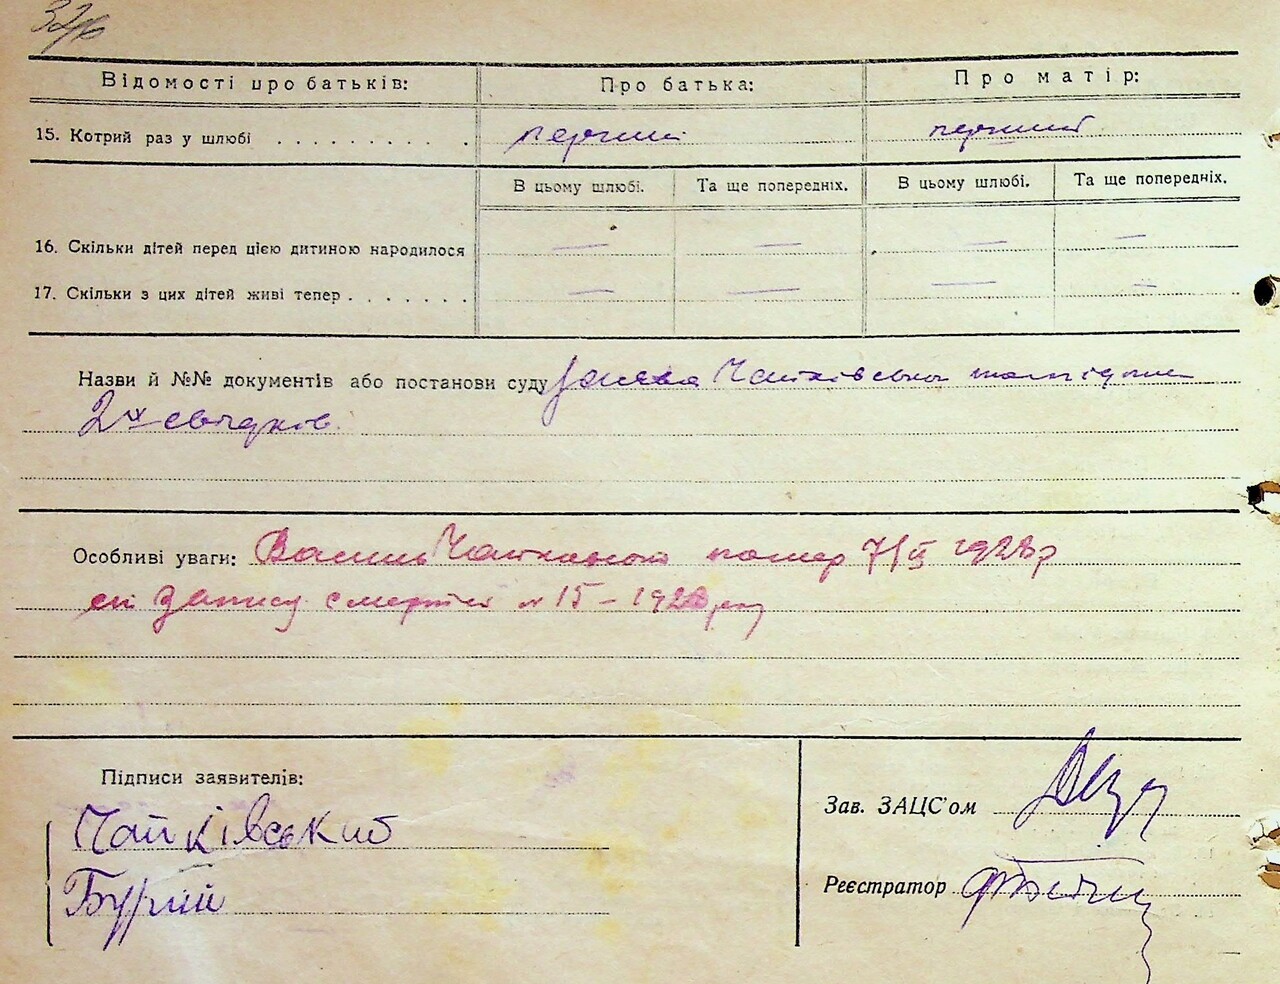 Відомості про батьків:
Про батька:
Про матір:
15. Котрий раз у шлюбі . . . . . . . . . перший перший
В цьому шлюбі. Та ще попередніх. В цьому шлюбі. Та ще попередніх.
16. Скільки дітей перед цією дитиною народилося — — — —
17. Скільки з цих дітей живі тепер . . . . . . . — — — —
Назви й №№ документів або постанови суду Заява Чайківського та підписи
2х свідків.
Особливі уваги: Василь Чайковський помер 7/ 1928 р
запису смерти № 15 – 1928 року
Підписи заявителів:
Чайківський
Бурлій
Зав. ЗАЦС'ом
Реєстратор